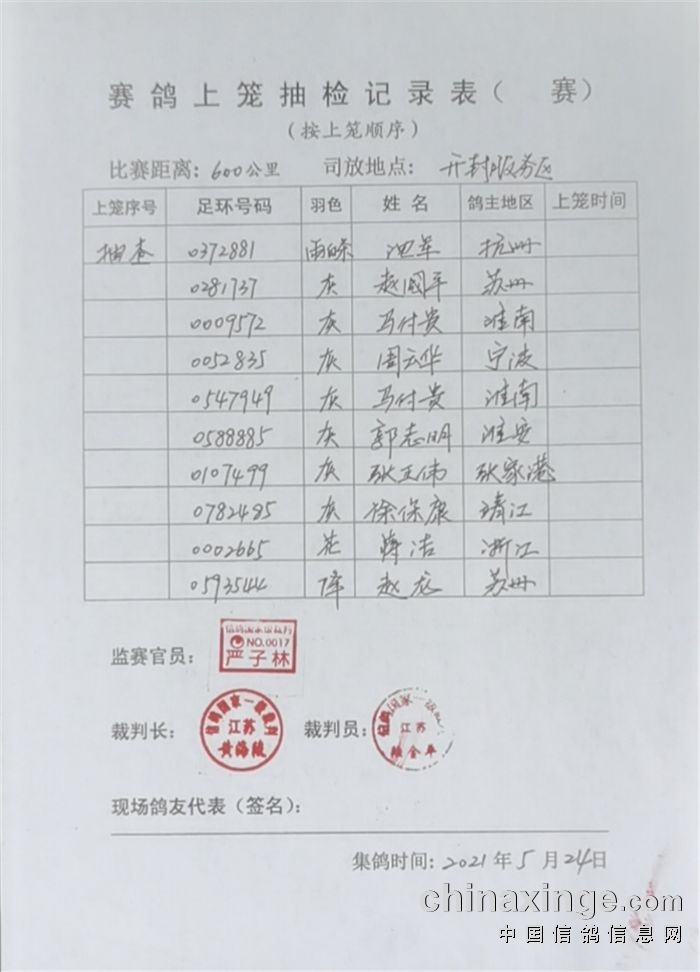 赛鸽上笼抽检记录表（ 赛）
（按上笼顺序）
比赛距离：600公里 司放地点：开封服务区
上笼序号 足环号码 羽色 姓名 鸽主地区 上笼时间
抽查 0372881 雨白条 池军 杭州
0281737 灰 赵国平 苏州
0009572 灰 马付贵 淮南
0052835 灰 周云华 宁波
0547949 灰 马付贵 淮南
0588885 灰 郭志明 淮安
0107499 灰 张正伟 张家港
0782495 灰 徐保康 靖江
0002665 花 洁 浙江
0593544 绛 赵龙 苏州
监赛官员：
NO.0017
严子林
裁判长： 信鸽国家一级裁判 江苏 黄海陵 裁判员： 信鸽国家一级 江苏 金
现场鸽友代表（签名）：
集鸽时间：2021年5月24日
chinaxinge.com
中国信鸽信息网